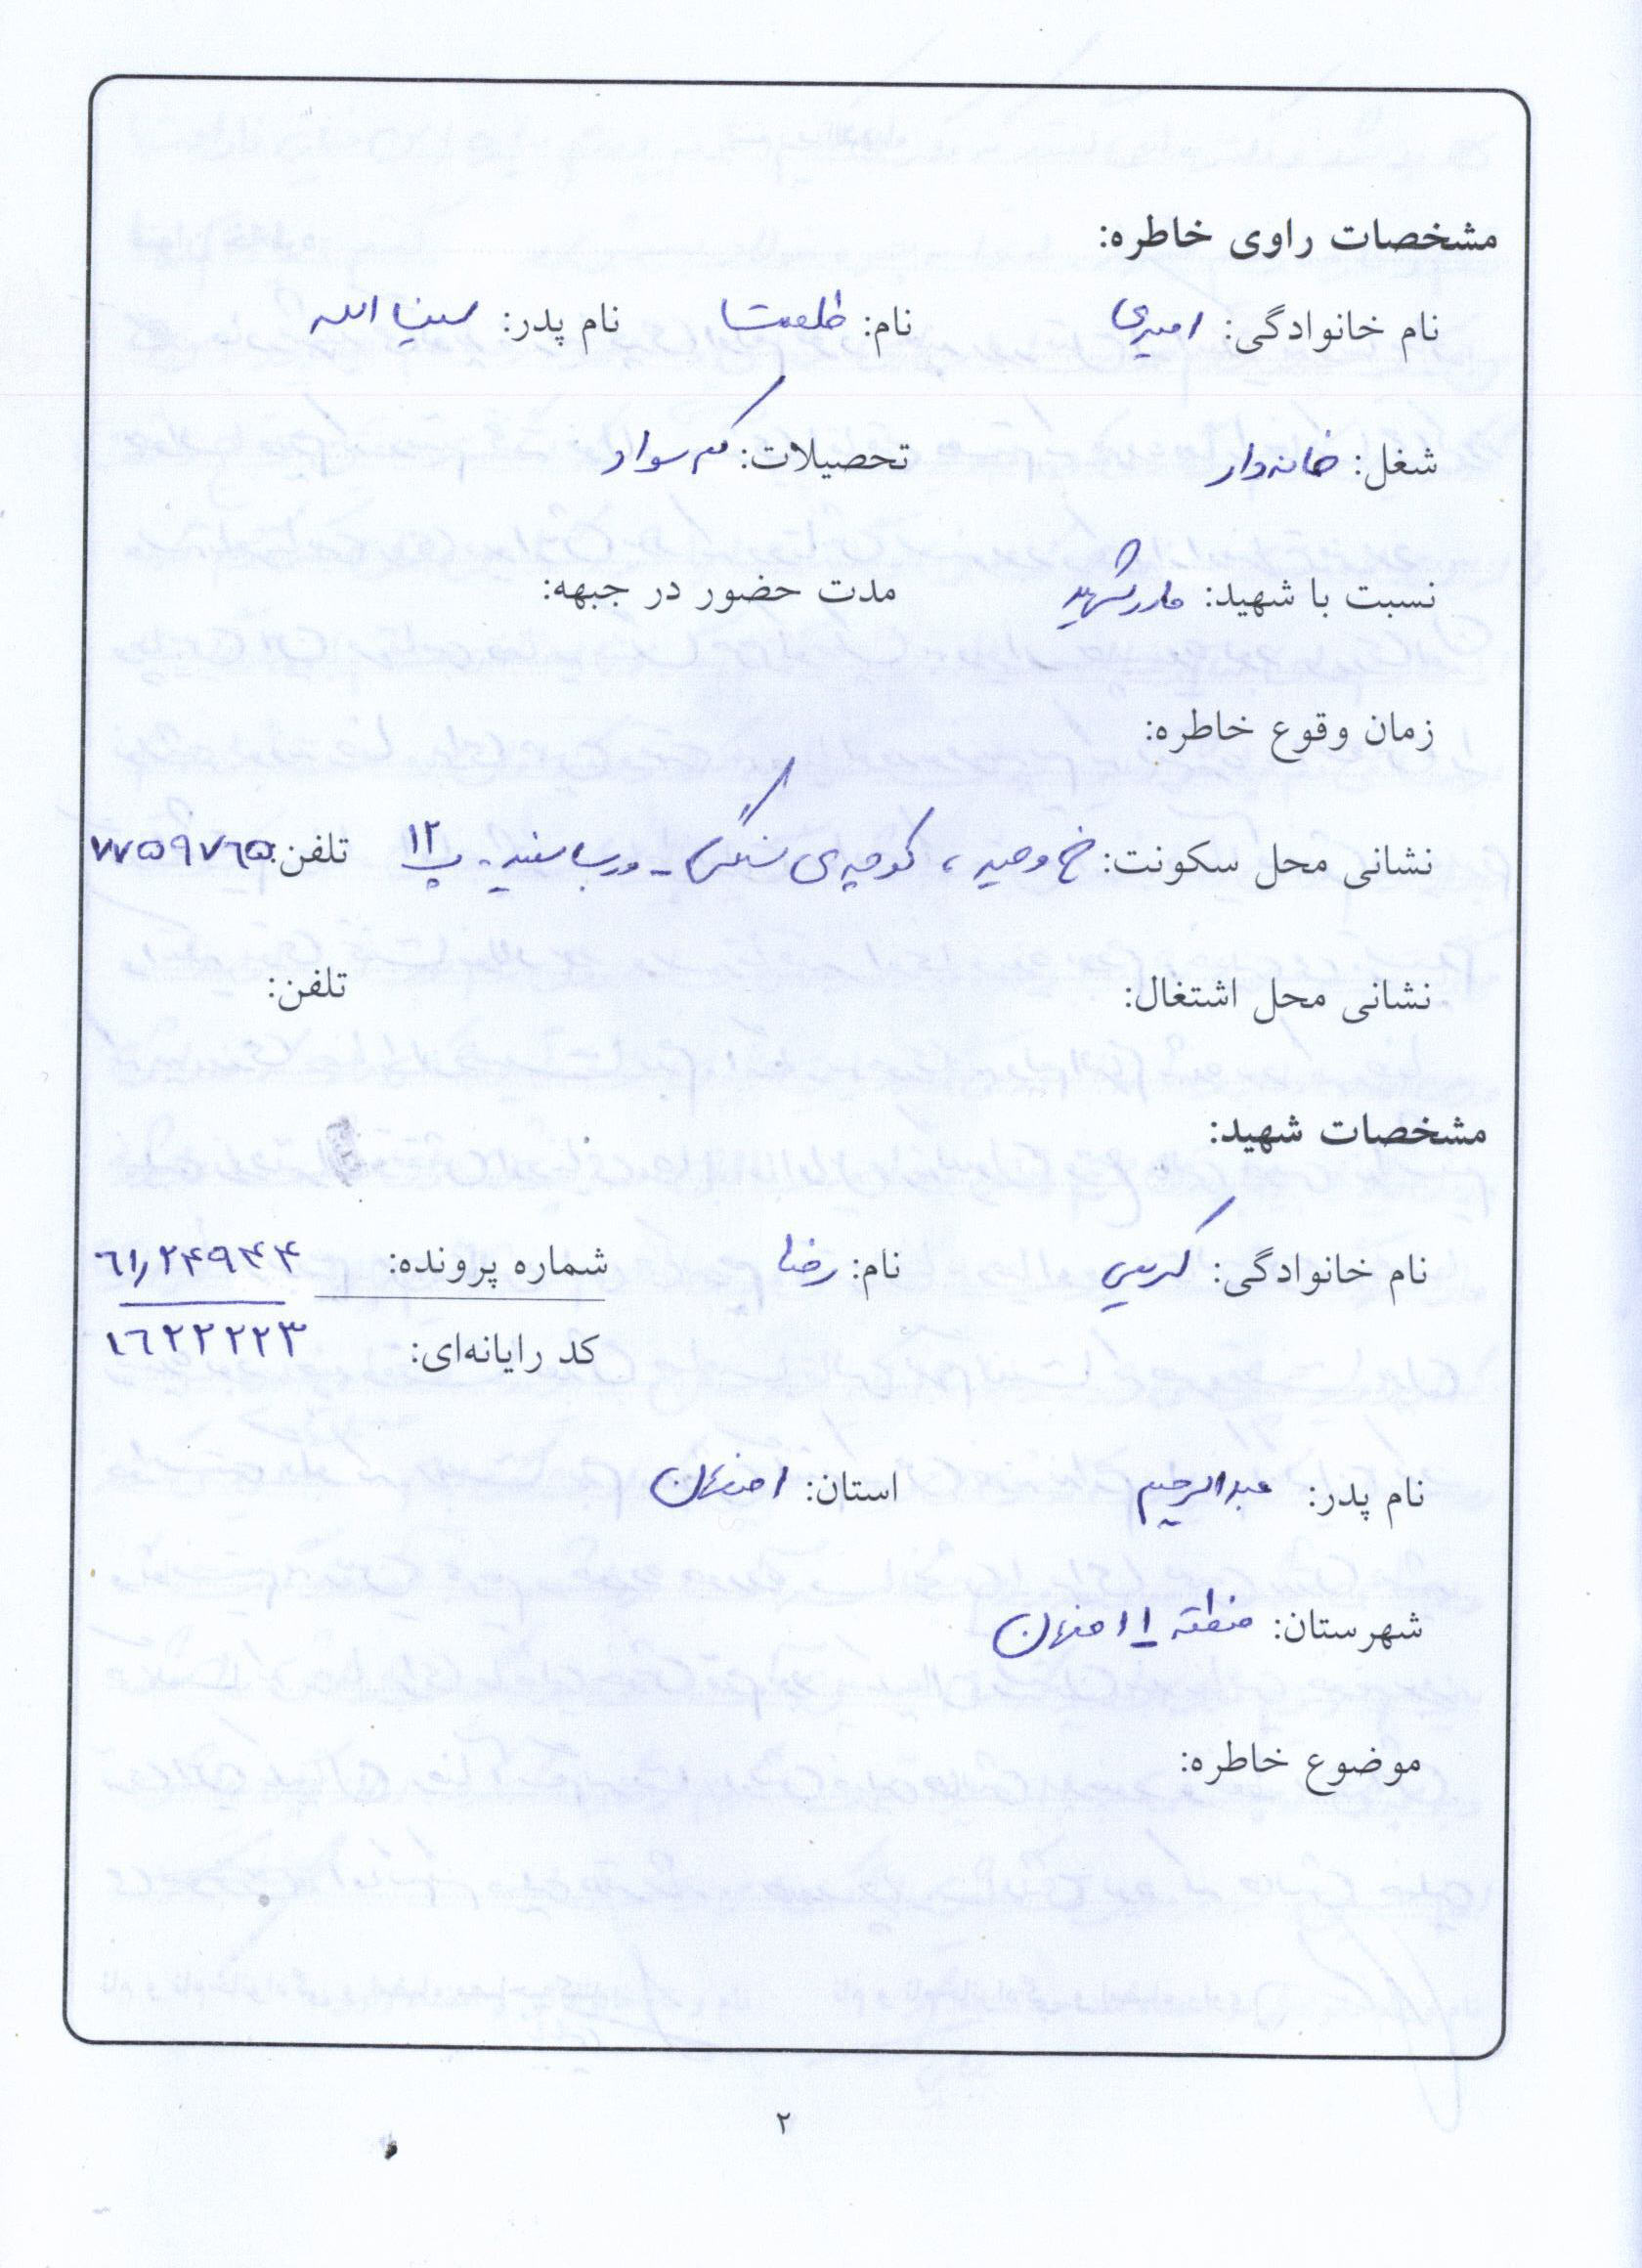 مشخصات راوی خاطره:
نام خانوادگی: امیری نام: طلعت نام پدر: سیف الله
شغل: خانه‌دار تحصیلات: کم سواد
نسبت با شهید: مادر شهید مدت حضور در جبهه:
زمان وقوع خاطره:
نشانی محل سکونت: خ وحید ، کوچه‌ی - درب سفید - پ ۱۲ تلفن: ۷۷۵۹۷۶۵
نشانی محل اشتغال: تلفن:
مشخصات شهید:
نام خانوادگی: کریمی نام: رضا شماره پرونده: ۶۱٫۲۴۹۴۴
کد رایانه‌ای: ۱۶۲۲۲۲۳
نام پدر: عبدالرحیم استان: اصفهان
شهرستان: منطقه ۱ اصفهان
موضوع خاطره:
۲